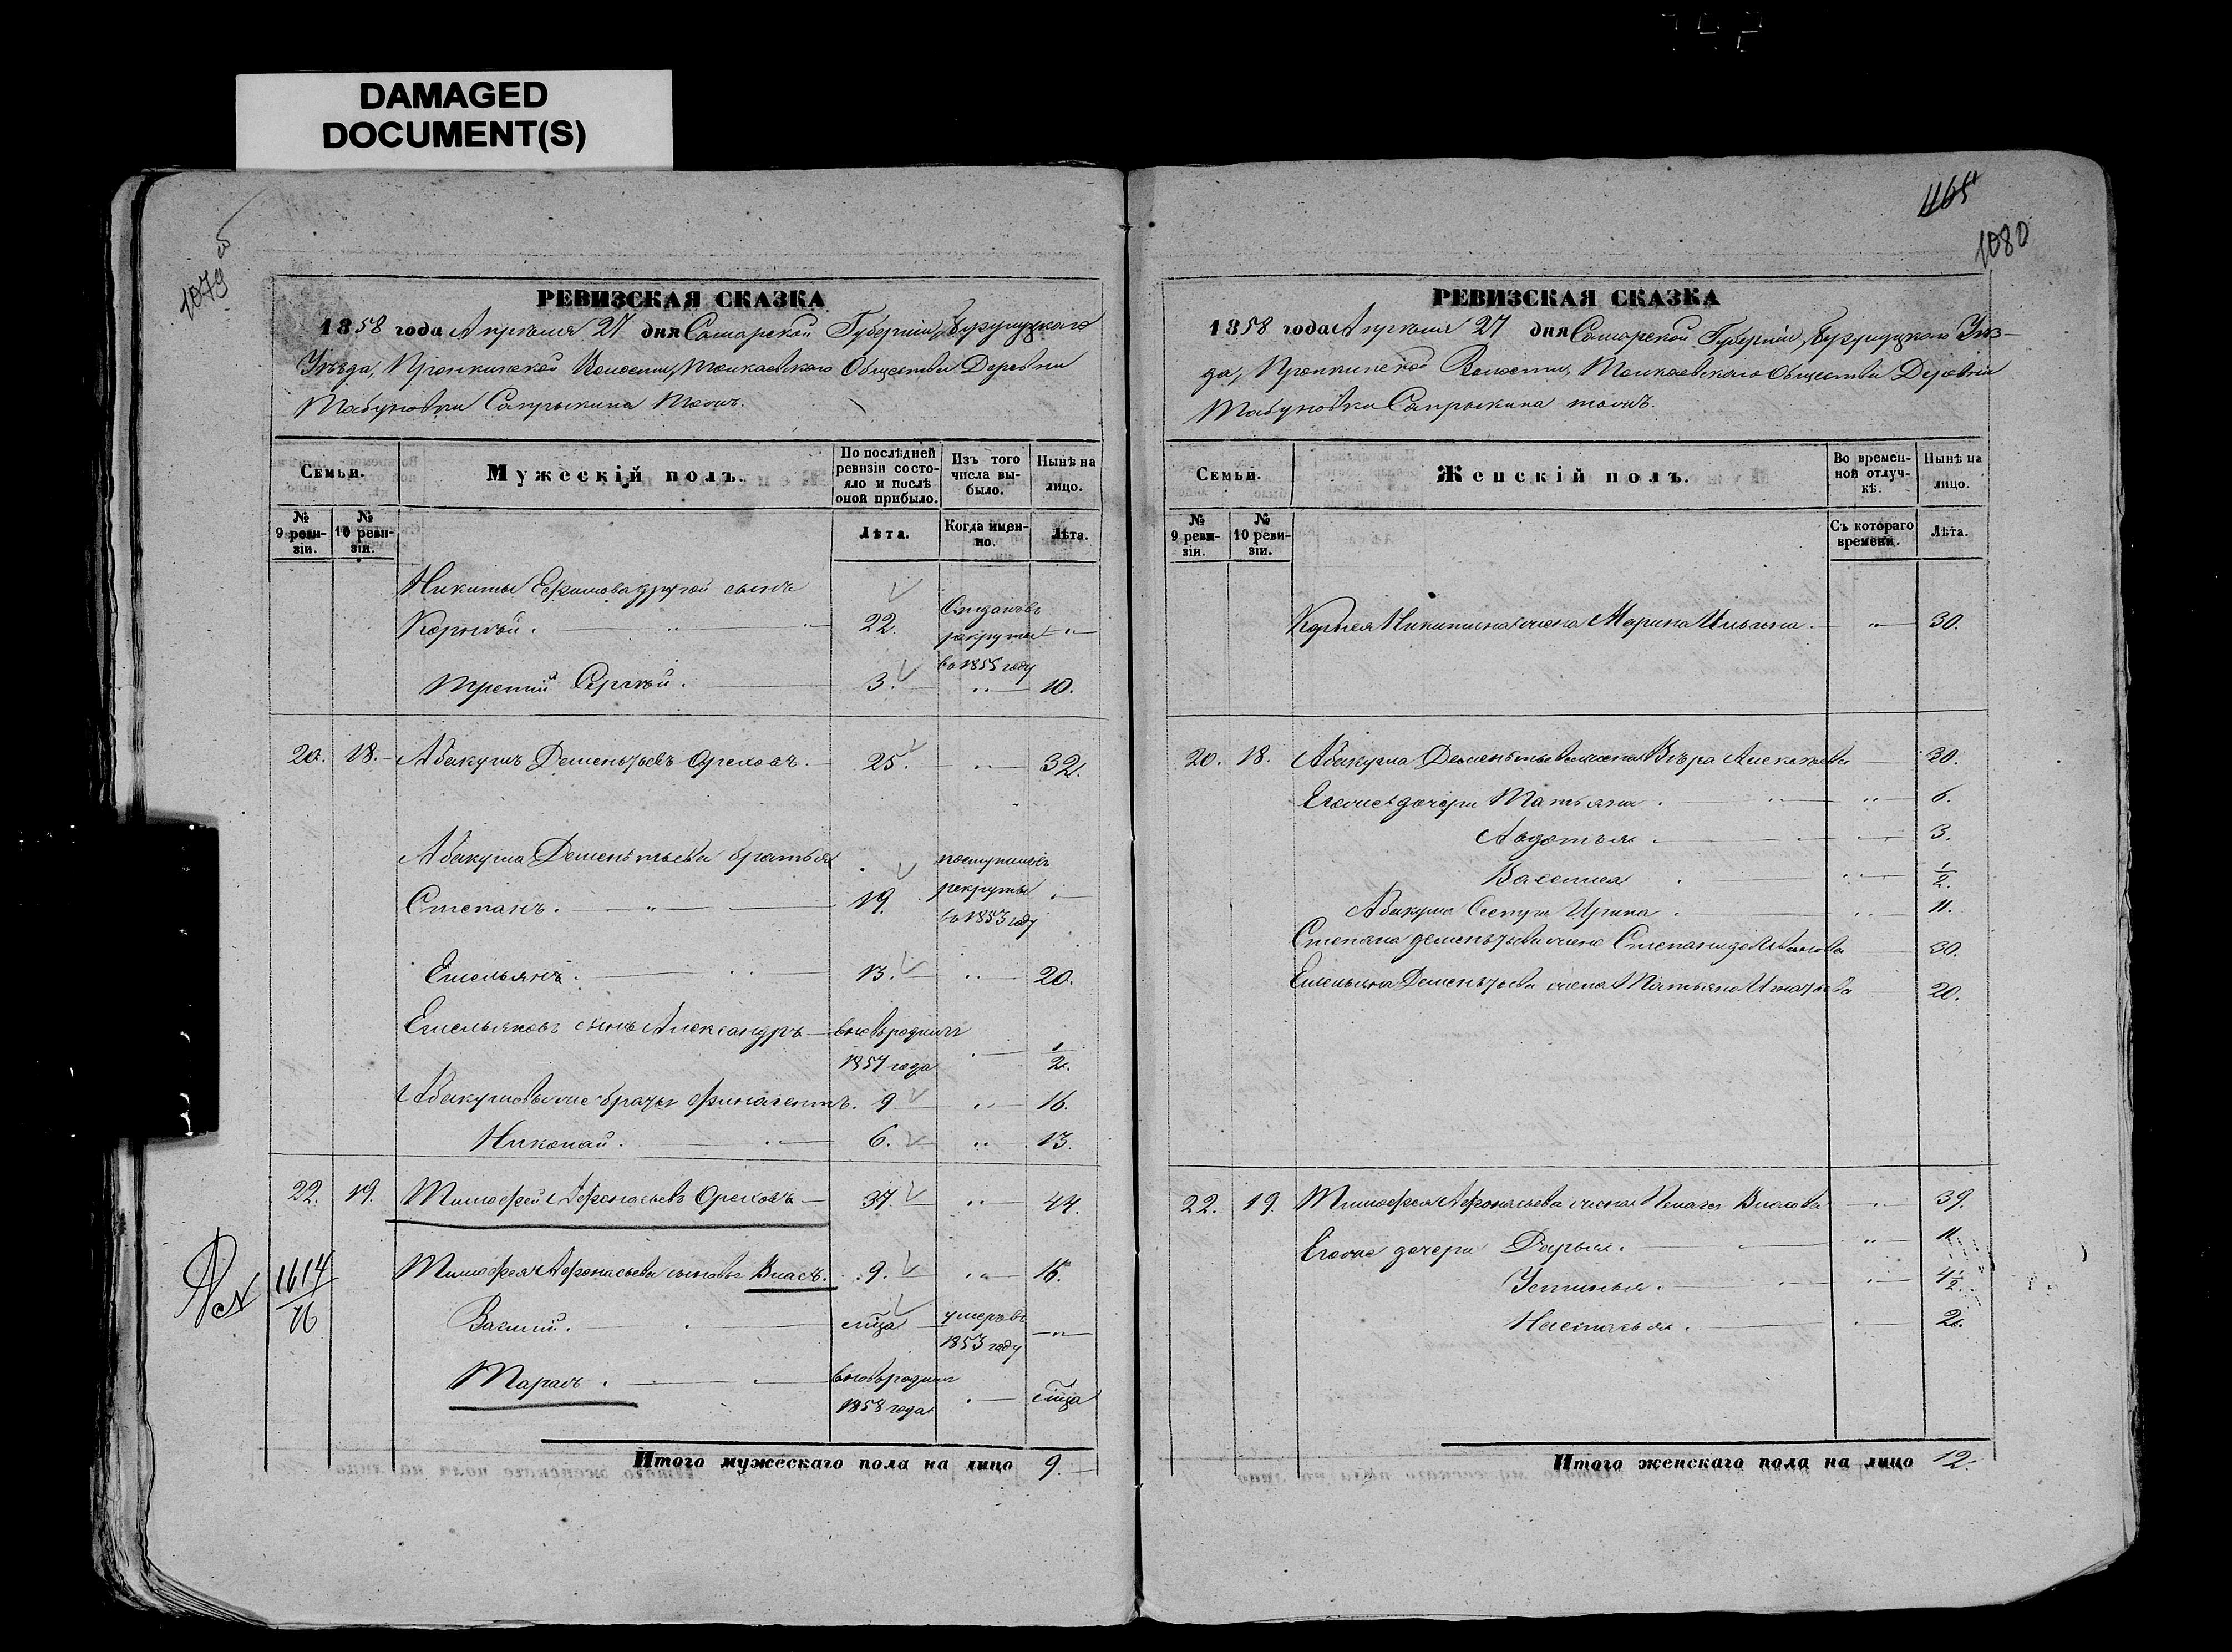 DAMAGED
DOCUMENT(S)
1079
РЕВИЗСКАЯ СКАЗКА
1858 года Апреля 27 дня Самарской Губернии,
Уезда, Волости, Общества Деревни
Табуновки Сапрыкина тожъ.
Семьи.
Мужескій полъ.
По послѣдней ревизіи состояло и послѣ оной прибыло.
Изъ того числа выбыло.
Нынѣ на лицо.
№ 9 ревизіи.
№ 10 ревизіи.
Лѣта.
Когда именно.
Лѣта.
Никиты Ефимова другой сынъ
Корнѣй. 22. рекруты
въ 1855 году
третій Сергѣй. 3. 10.
20. 18. Абакумъ Дементьевъ Ореховъ. 25. 32.
Абакума Дементьева братья
Степанъ. 19. поступилъ въ рекруты въ 1853 году
Емельянъ. 13. 20.
Емельяновъ сынъ Александръ вновь родился
1857 года 1/2.
Абакумовы же братья Финагентъ. 9 16.
Николай. 6. 13.
22. 19. Тимофей Афонасьевъ Ореховъ 37. 44.
1614
76
Тимофея Афонасьева сыновья Власъ. 9. 16.
Василий. умеръ въ
1853 году
Тарасъ. вновь родился
1858 года
Итого мужескаго пола на лицо 9.
1080
РЕВИЗСКАЯ СКАЗКА
1858 года Апреля 27 дня Самарской Губернии, Уез-
да, Волости, Общества Деревни
Табуновки Сапрыкина тожъ.
Семьи.
Женскій полъ.
Во временной отлучкѣ.
Нынѣ на лицо.
№ 9 ревизіи.
№ 10 ревизіи.
Съ котораго времени.
Лѣта.
Корнея Никитина жена Марина Ильина. 30.
20. 18. Абакума Дементьева жена Вѣра 30.
Его же дочери Татьяна. 6.
Авдотья. 3.
Васелиса 1/2.
Абакума Сестра Ирина. 11.
Степана Дементьева жена Степанида Иванова 30.
Емельяна Дементьева жена Татьяна Игнатьева 20.
22. 19. Тимофея Афонасьева жена Пелагея Власова 39.
Его же дочери Дарья. 11.
Устинья. 4 1/2.
Настасья. 2.
Итого женскаго пола на лицо 12.